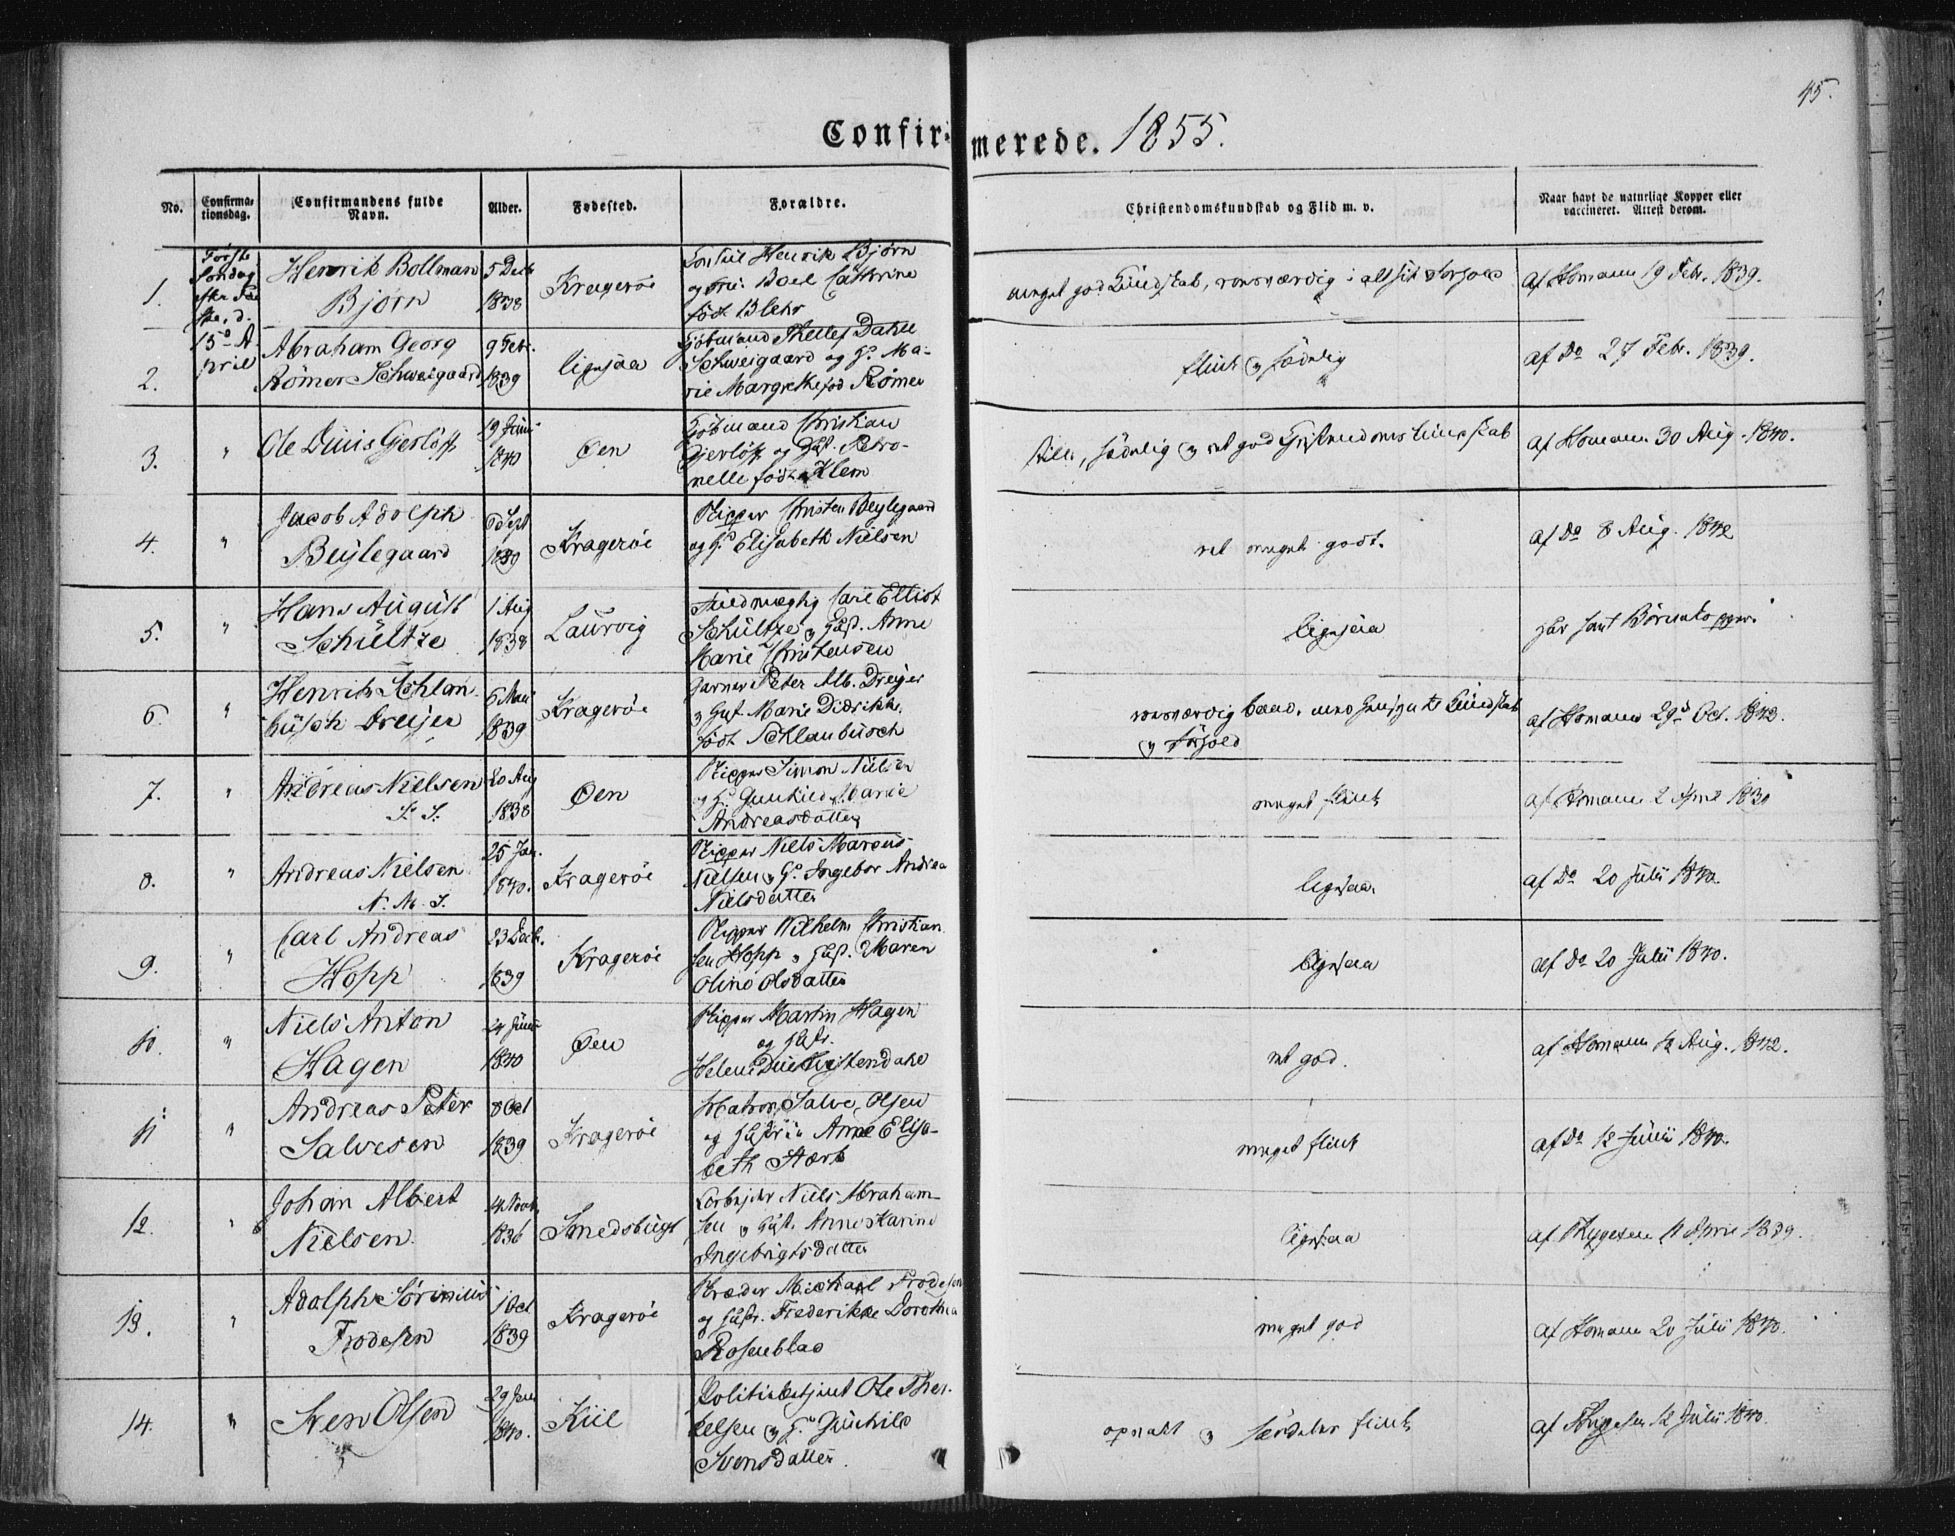 45.
Confirmerede. 1855.
No.
Confirmationsdag.
Confirmandens fulde Navn.
Alder.
Fødested.
Forældre.
Christendomskundskab og Flid m. v.
Naar havt de naturlige Kopper eller vaccineret. Attest derom.
1.
Første
Søndag
efter Paa
ske, d.
15de A
pril
Henrik Bollman
Bjørn
5 Decb
1838
Kragerøe
Consul Henrik Bjørn
og Fru Boel Cathrine
født Blehr
meget god Kundskab, roesværdig i alt sit Forhold
af Homann 19 Febr. 1839.
2.
Abraham Georg
Rømer Schweigaard
9 Febr.
1839
ligesaa
Kjøbmand Thellef Dahll
Schweigaard og H. Ma-
rie Margrethe fød Rømer
flink og sædelig
af Do 27 Febr. 1839.
3.
"
Ole Duus Gjerløff
19 Juni
1840
Øen
Kjøbmand Christian
Gjerløff og Hst. Petro-
nelle født Klem
stille, sædelig og ret god Christendomskundskab
af Homann 30 Aug. 1840.
4.
"
Jacob Adolph
Beylegaard
6 Sept
1839
Kragerøe
Skipper Christen Beylegaard
og H. Elisabeth Nielsen
ret meget godt.
af Do 8 Aug. 1842
5.
"
Hans August
Schültze
1 Aug
1838
Laurvig
Fuldmægtig Carl Elliot
Schültze og Hust. Anne
Marie Christensen
ligesaa
har havt Børnekopper.
6.
"
Henrik Schlan
büsch Dreijer
6 Mai
1839
Kragerøe
Garver Peter Alb. Dreijer
og Hust. Marie Didrikke
født Schlanbusch
roesværdig baade med Hensyn til Kundskab
og Forhold
af Homann 29de Oct. 1843.
7.
"
Andreas Nielsen
S. S.
20 Aug
1838
Øen
Skipper Simon Nielsen
og H. Gunhild Marie
Andreasdatter
meget flink
af Homann 2 April 1839
8.
"
Andreas Nielsen
N. M. S.
25 Jan.
1840.
Kragerøe
Skipper Niels Marcus
Nielsen og H. Ingebor Andrea
Nielsdatter
ligesaa
af Do 20 Juli 1840.
9.
"
Carl Andreas
Hopp
23 Decb.
1839
Kragerøe
Skipper Vilhelm Christian
sen Hopp og Hust. Maren
Oline Olsdatter
ligesaa
af Do 20 Juli 1840.
10.
"
Niels Anton
Hagen
24 Juni
1840
Øen
Skipper Martin Hagen
og Hustr.
Helene Due Christendahl
ret god.
af Homann 12 Aug. 1842.
11.
"
Andreas Peter
Salvesen
8 Oct
1839
Kragerøe
Matros Salve Olsen
og Hustru Anne Elisa-
beth Stærk
meget flink
af Do 12 Juni 1840.
12.
"
Johan Albert
Nielsen
14 Novb.
1836
Smedsbugt
Arbejder Niels Abraham-
sen og Hust. Anne Karine
Ingebrigtsdatter
ligesaa
af Thygesen 11 April 1839.
13.
"
Adolph Sørinius
Frodesen
1 Oct
1839
Kragerøe
Skræder Michael Frodesen
og Hustr. Frederikke Dorothea
Rosenblad
meget god
af Homann 20 Juli 1840.
14.
"
Sven Olsen
29 Jan
1840.
Kiil
Politiebetjent Ole Ther-
kelsen og H. Gunhild
Svensdatter.
opvakt og særdeles flink
af Thygesen 12 Juli 1840.